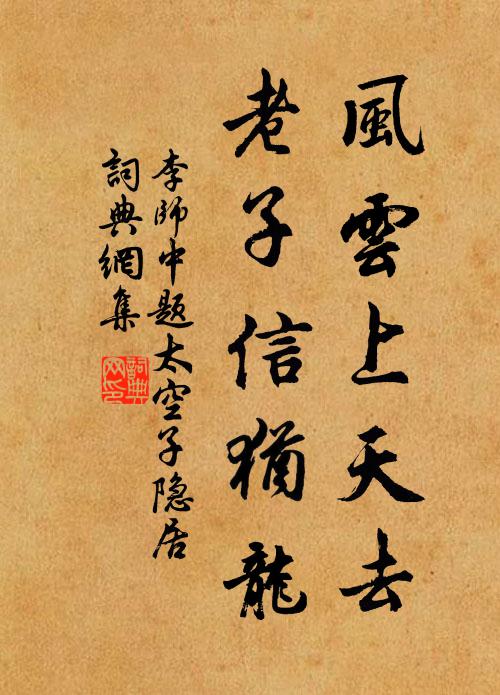 風雲上天去
老子信猶龍
李師中题太空子隐居
詞典網集
詞典
网印